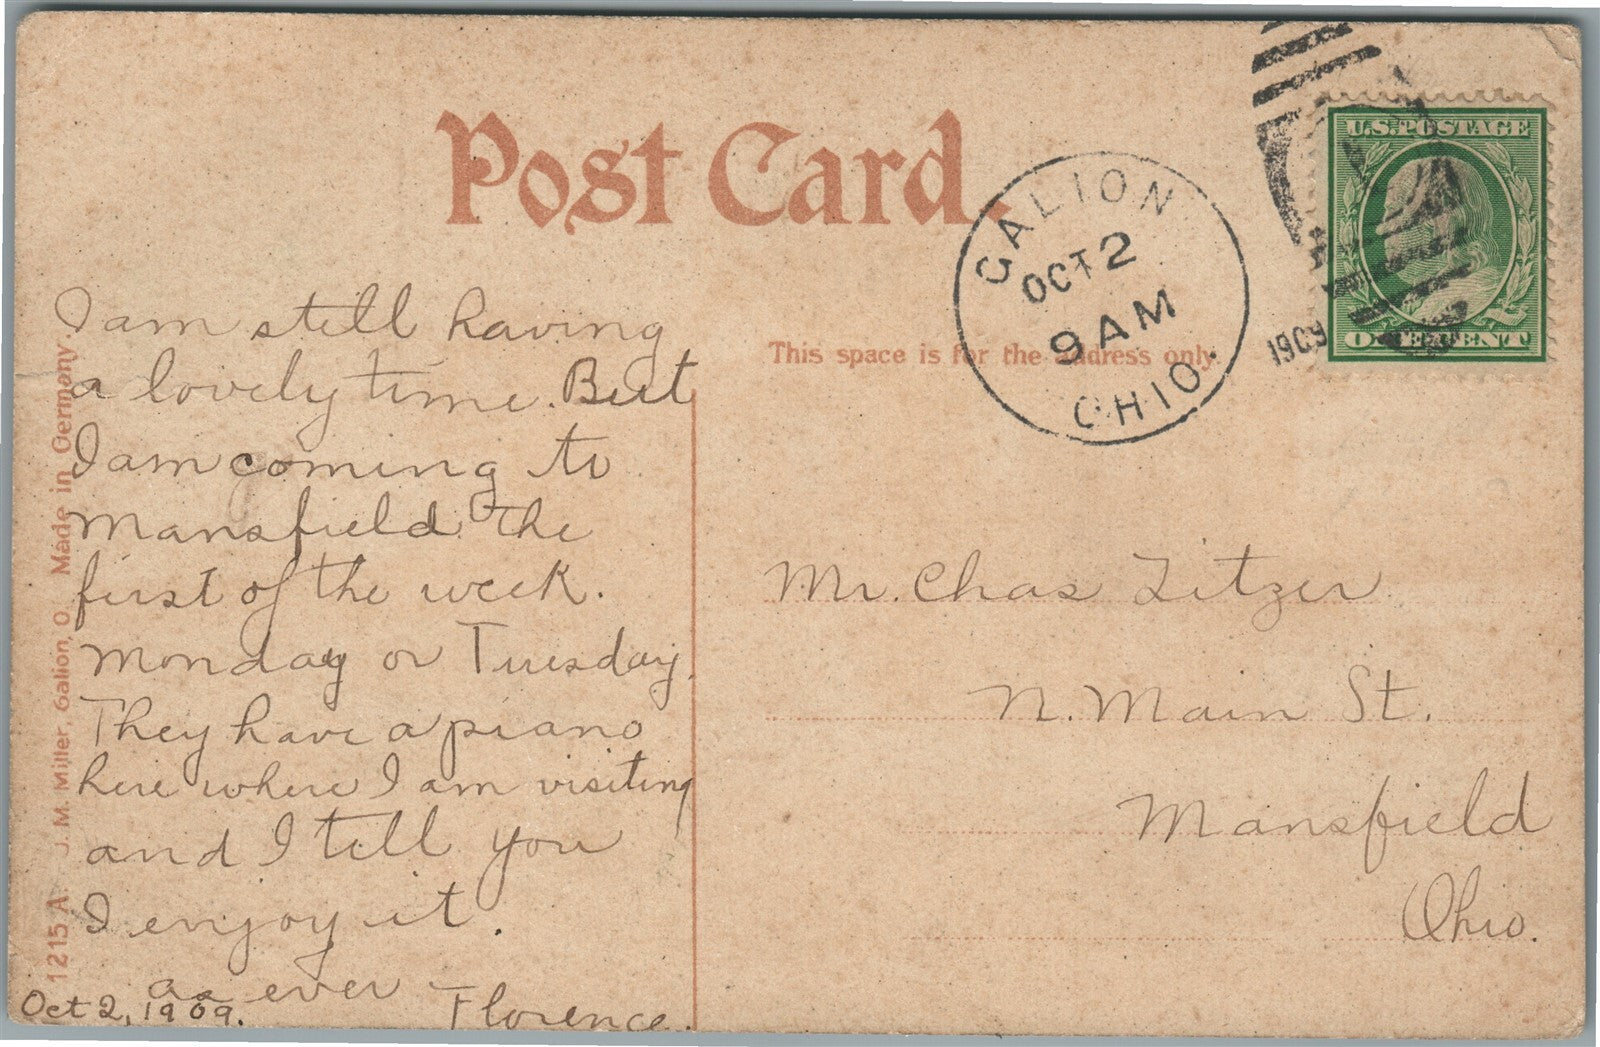 Post Card.
GALION
OCT 2
9 AM
OHIO.
1909
U.S. POSTAGE
ONE CENT
This space is for the address only.
I am still having
a lovely time. But
I am coming to
Mansfield the
first of the week.
Monday or Tuesday.
They have a piano
here where I am visiting
and I tell you
I enjoy it.
as ever –
Florence.
Oct 2, 1909.
Mr. Chas Litzer
N. Main St.
Mansfield
Ohio.
1215 A. J. M. Miller, Galion, O. Made in Germany.